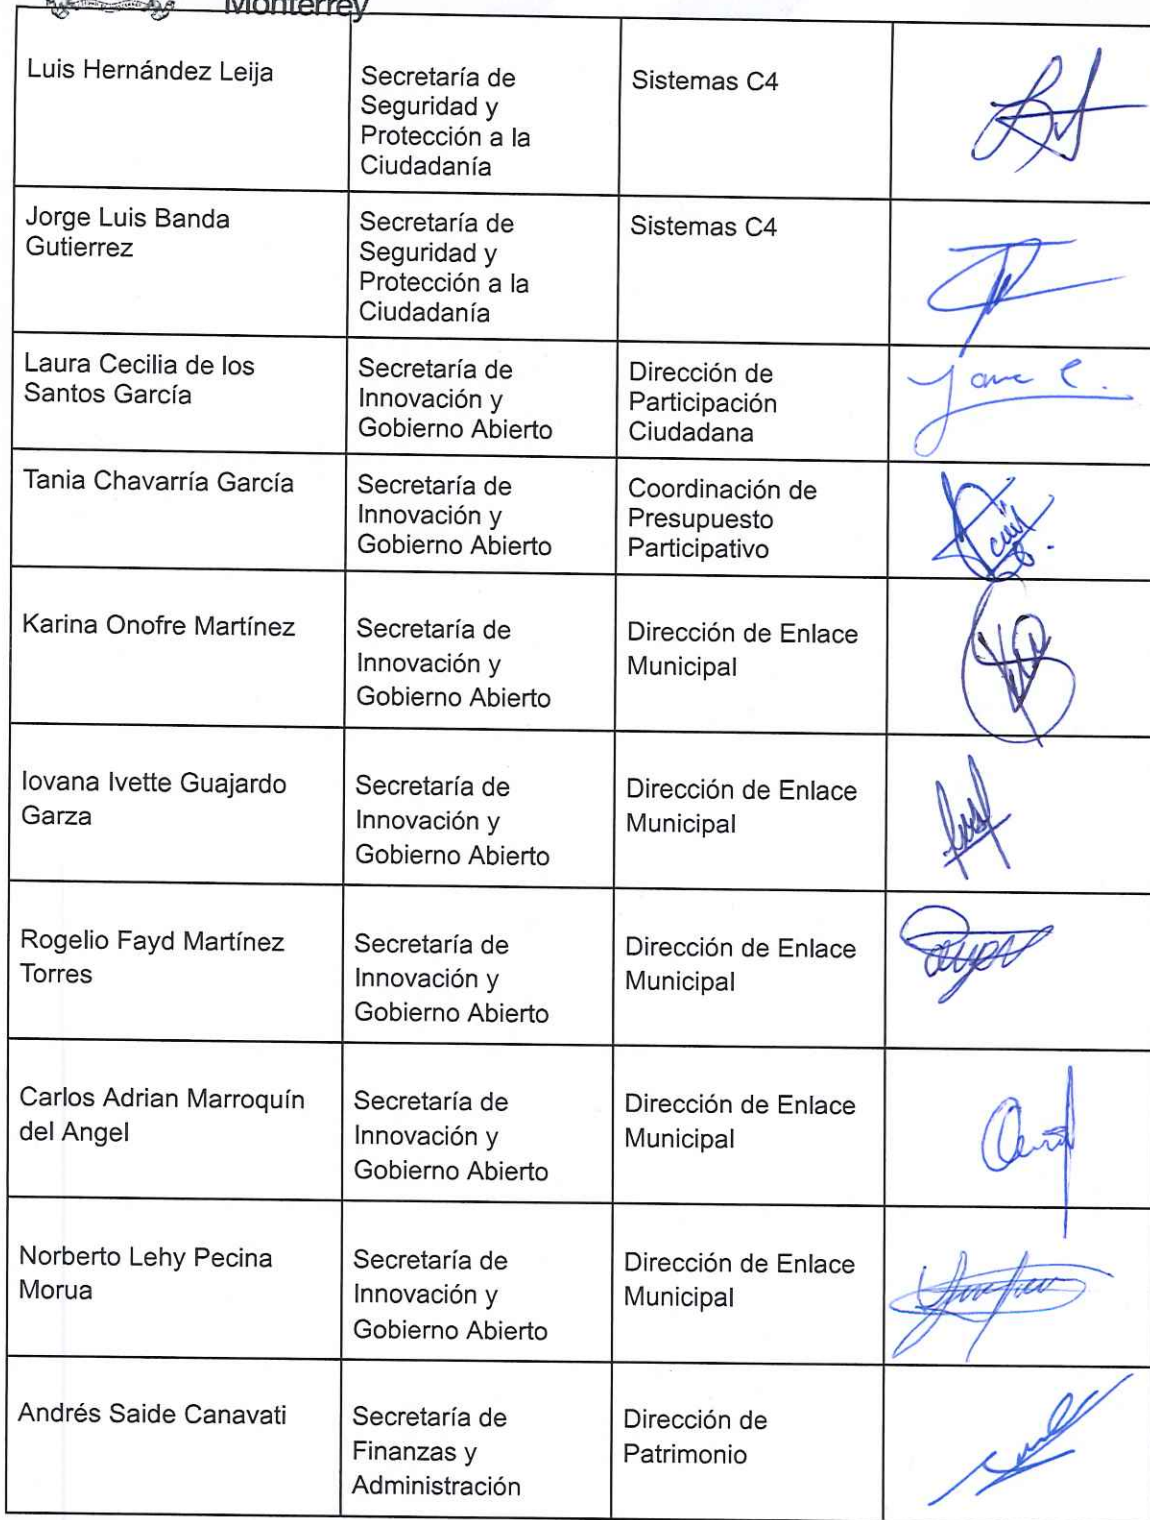 Monterrey
Luis Hernández Leija
Secretaría de
Seguridad y
Protección a la
Ciudadanía
Sistemas C4
Jorge Luis Banda
Gutierrez
Secretaría de
Seguridad y
Protección a la
Ciudadanía
Sistemas C4
Laura Cecilia de los
Santos García
Secretaría de
Innovación y
Gobierno Abierto
Dirección de
Participación
Ciudadana
Tania Chavarría García
Secretaría de
Innovación y
Gobierno Abierto
Coordinación de
Presupuesto
Participativo
Karina Onofre Martínez
Secretaría de
Innovación y
Gobierno Abierto
Dirección de Enlace
Municipal
Iovana Ivette Guajardo
Garza
Secretaría de
Innovación y
Gobierno Abierto
Dirección de Enlace
Municipal
Rogelio Fayd Martínez
Torres
Secretaría de
Innovación y
Gobierno Abierto
Dirección de Enlace
Municipal
Carlos Adrian Marroquín
del Angel
Secretaría de
Innovación y
Gobierno Abierto
Dirección de Enlace
Municipal
Norberto Lehy Pecina
Morua
Secretaría de
Innovación y
Gobierno Abierto
Dirección de Enlace
Municipal
Andrés Saide Canavati
Secretaría de
Finanzas y
Administración
Dirección de
Patrimonio